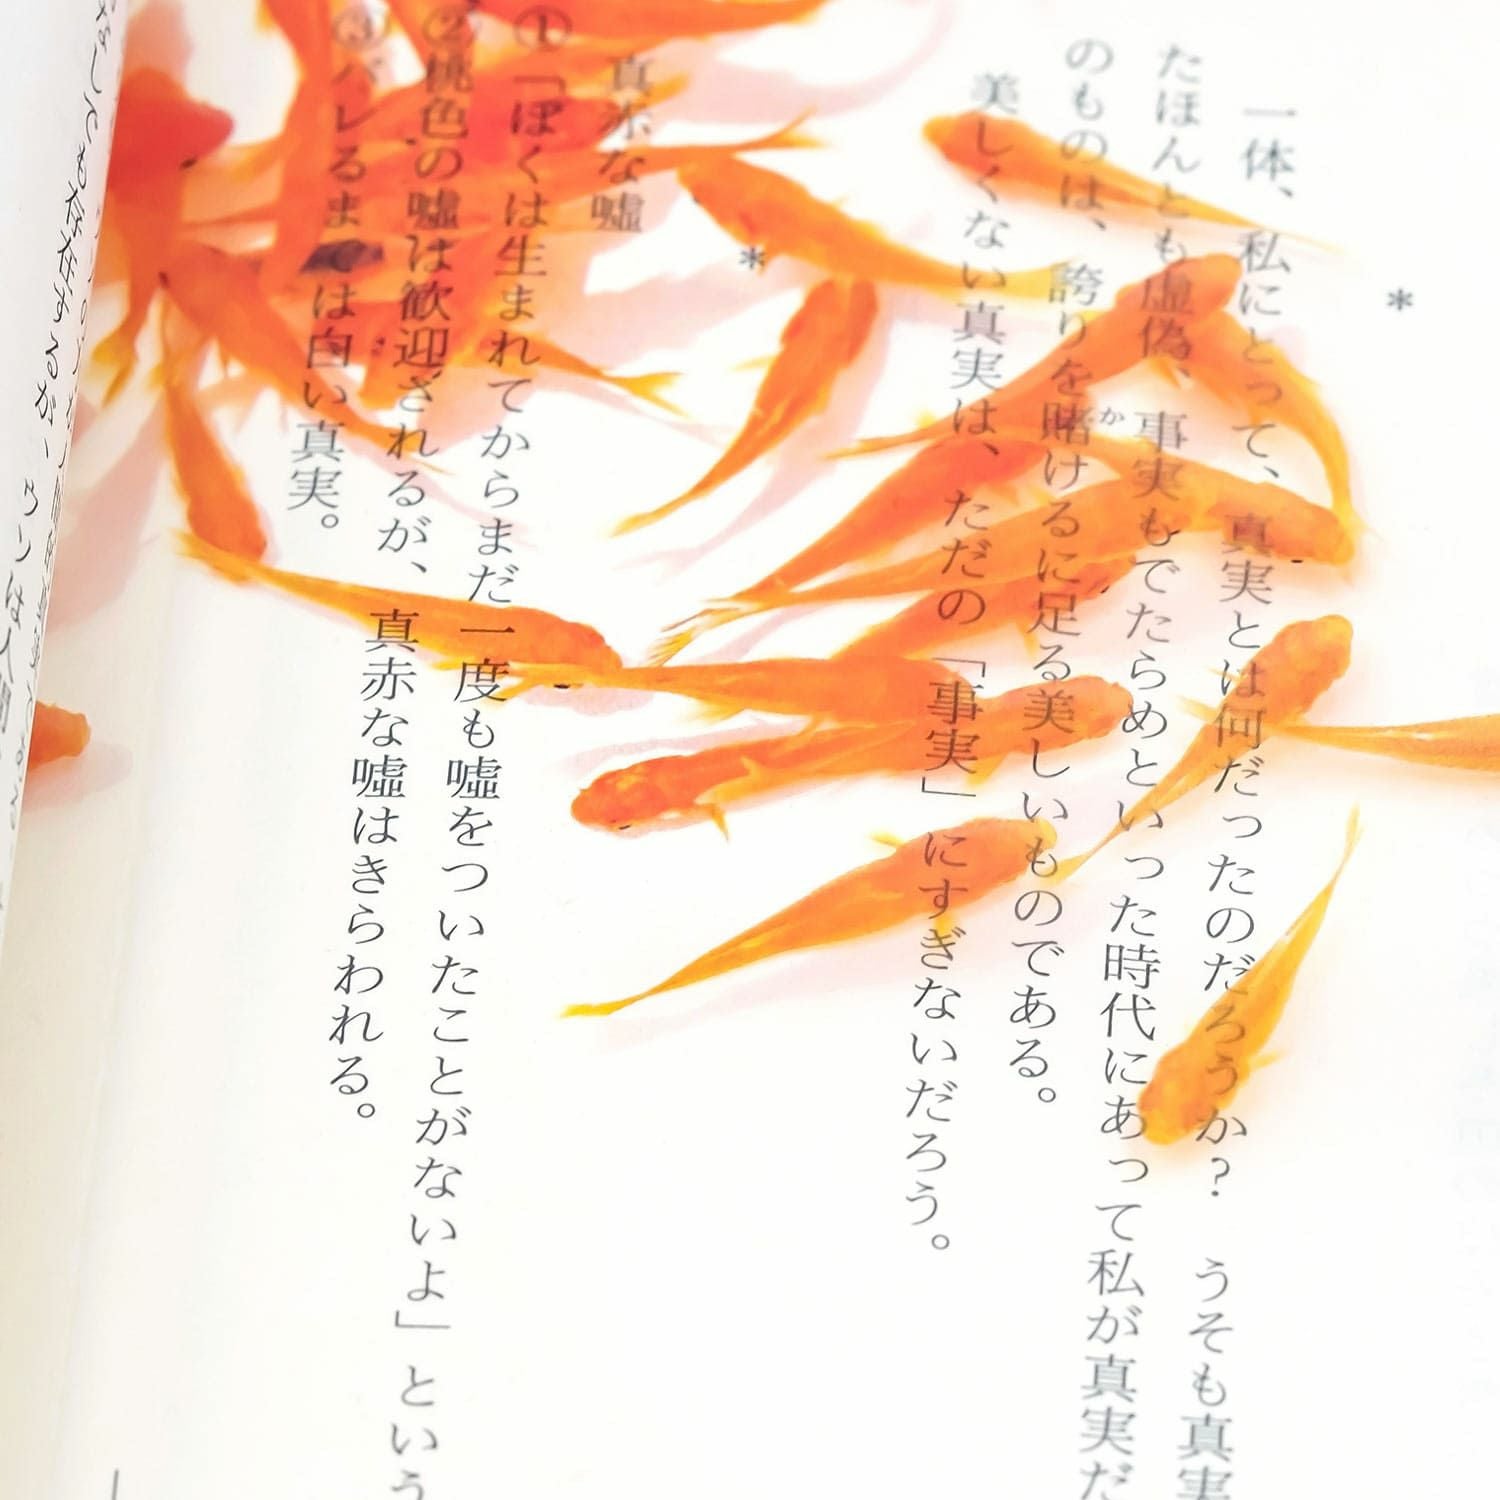 *
一体、私にとって、真実とは何だったのだろうか? うそも真実
たほんとも虚偽、事実もでたらめといった時代にあって私が真実だ
のものは、誇りを賭けるに足る美しいものである。
か
美しくない真実は、ただの「事実」にすぎないだろう。
*
真赤な嘘
①「ぼくは生まれてからまだ一度も嘘をついたことがないよ」という
②桃色の嘘は歓迎されるが、真赤な嘘はきらわれる。
③バレるまでは白い真実。
なしでも存在するが、ウソは人間